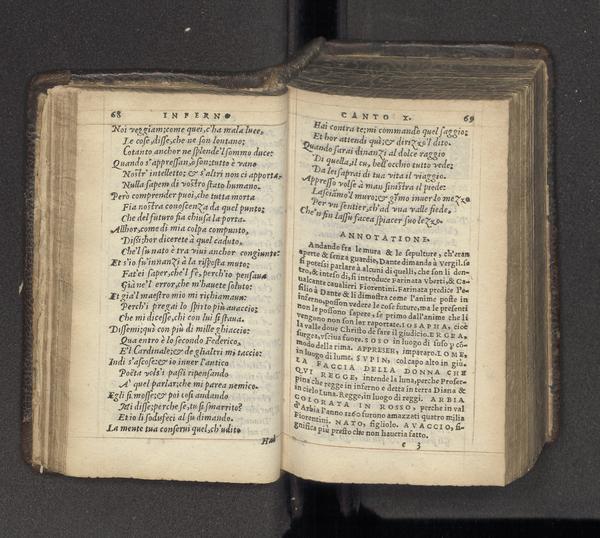 68 INFERNO
Noi veggiam; come quei, c'ha mala luce,
Le cose, disse, che ne son lontano;
Cotanto anchor ne splende'l sommo duce:
Quando s'appressan, o son; tutto è vano
Nostr' intelletto; & s'altri non ci apporta,
Nulla sapem di vostro stato humano.
Però comprender puoi, che tutta morta
Fia nostra conoscenza da quel punto;
Che del futuro fia chiusa la porta.
Allhor, come di mia colpa compunto,
Dissi; hor dicerete à quel caduto,
Che'l su nato è tra viui anchor congiunto:
Et s'io fu'innanzi à la risposta muto;
Fat'ei saper, che'l fe, perch'io pensaua
Già ne l'error, che m'hauete soluto:
Et già'l maestro mio mi richiamaua:
Perch'i pregai lo spirto più auaccio;
Che mi dicesse, chi con lui si staua.
Dissemi; quì con più di mille ghiaccio:
Qua entro è lo secondo Federico,
E'l Cardinale; & de gli altri mi taccio:
Indi s'ascose: & io inuer l'antico
Poëta volsi i passi ripensando
A' quel parlar; che mi parea nemico.
Egli si mosse; & poi cosi andando
Mi disse; perche se, tu si smarrito?
Et io li sodisfeci al su dimando.
La mente tua conserui quel, ch'udito
Hai
CANTO X. 69
Hai contra te; mi commandò quel saggio;
Et hor attendi quì; & dirizzò'l dito.
Quando sarai dinanzi al dolce raggio
Di quella, il cu, bell'occhio tutto vede;
Da lei saprai di tua vita il viaggio.
Appresso volse à man sinistra il piede:
Lasciamo'l muro; & gimo inuer lo mezzo
Per vn sentier, ch'ad vna valle fiede,
Che'n fin lassu facea spiacer suo lezzo.
ANNOTATIONE.
Andando fra le mura & le sepulture, ch'eran
aperte & senza guardie, Dante dimanda à Vergil. se
si potessi parlare à alcuni di quelli, che son li den-
tro, & inteso di, si introduce Farinata Vberti, & Ca-
ualcante caualieri Fiorentini. Farinata predice l'e-
silio à Dante & li dimostra come l'anime poste in
inferno, posson vedere le cose future, ma le presenti
non le possono sapere, se primo dall'anime che li
vengono non son lor raportate. IOSAPHA, cioè
la valle doue Christo de fare il giudicio. ERGEA,
surgea, vsciua fuore. SOSO in luogo di suso y có-
modo della rima. APPRESER, impararo. LOME,
in luogo di lume. SVPIN, col capo alto in giù.
LA FACCIA DELLA DONNA CHE
QVI REGGE, intende la luna, perche Proser-
pina che regge in inferno è detta in terra Diana &
in cielo Luna. Regge, in luogo di reggi. ARBIA
COLORATA IN ROSSO, perche in val
d'Arbia l'anno 1260 furono amazzati quatro milia
Fiorentini. NATO, figliolo. AVACCIO, si-
gnifica più presto che non haueria fatto.
e 3